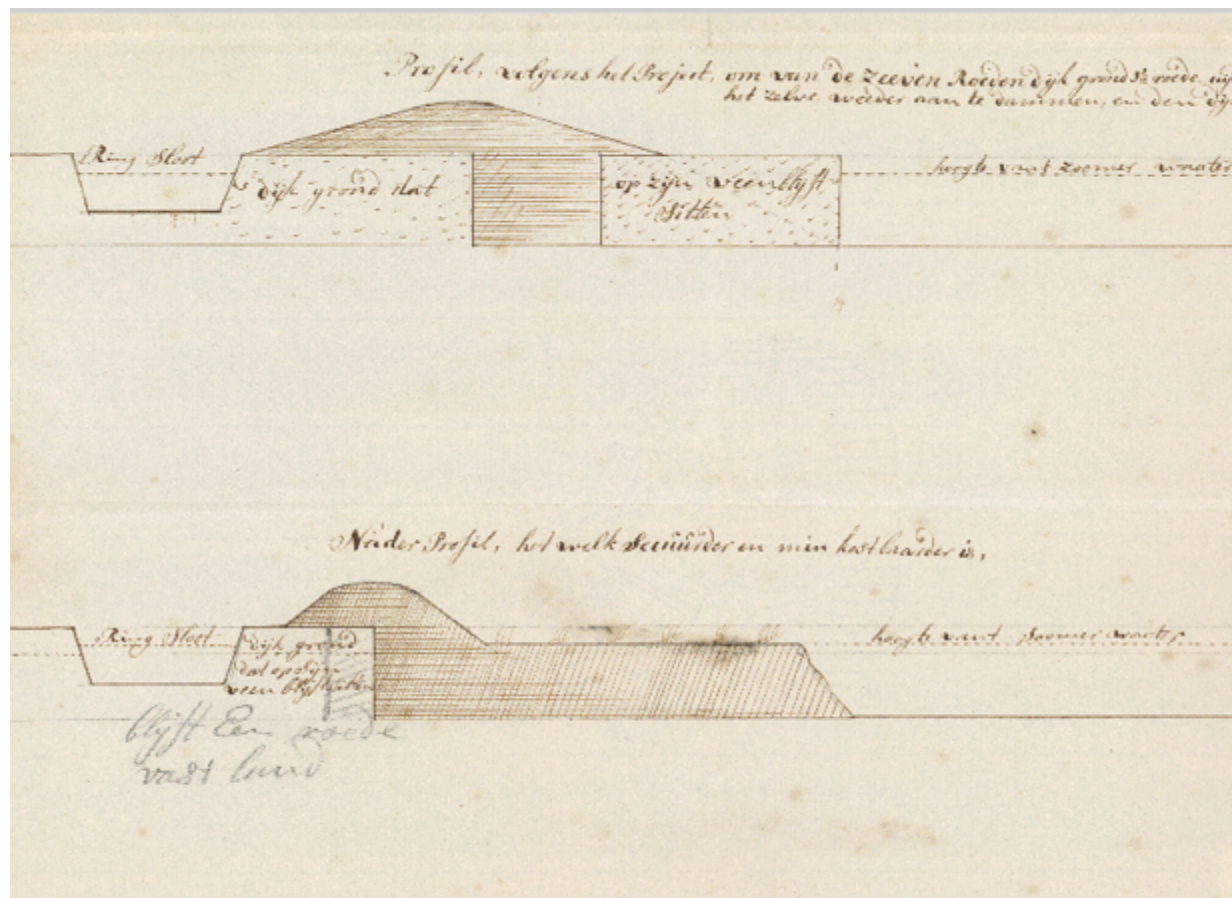 Profil, volgens het Project, om van de Zeeven Roeden dijk grond
het zelve weeder aan te dammen, en den
Ring Sloot
dijk grond dat
op zijn veen blyft
Sitten
hoogte van't zoomer waater
Nader Profil, het welk Secuurder en min kostbaarder is,
Ring Sloot
dijk grond
dat op zijn
veen blijft sitten
hoogte vant Soomer waater
blijft Een roede
vast land